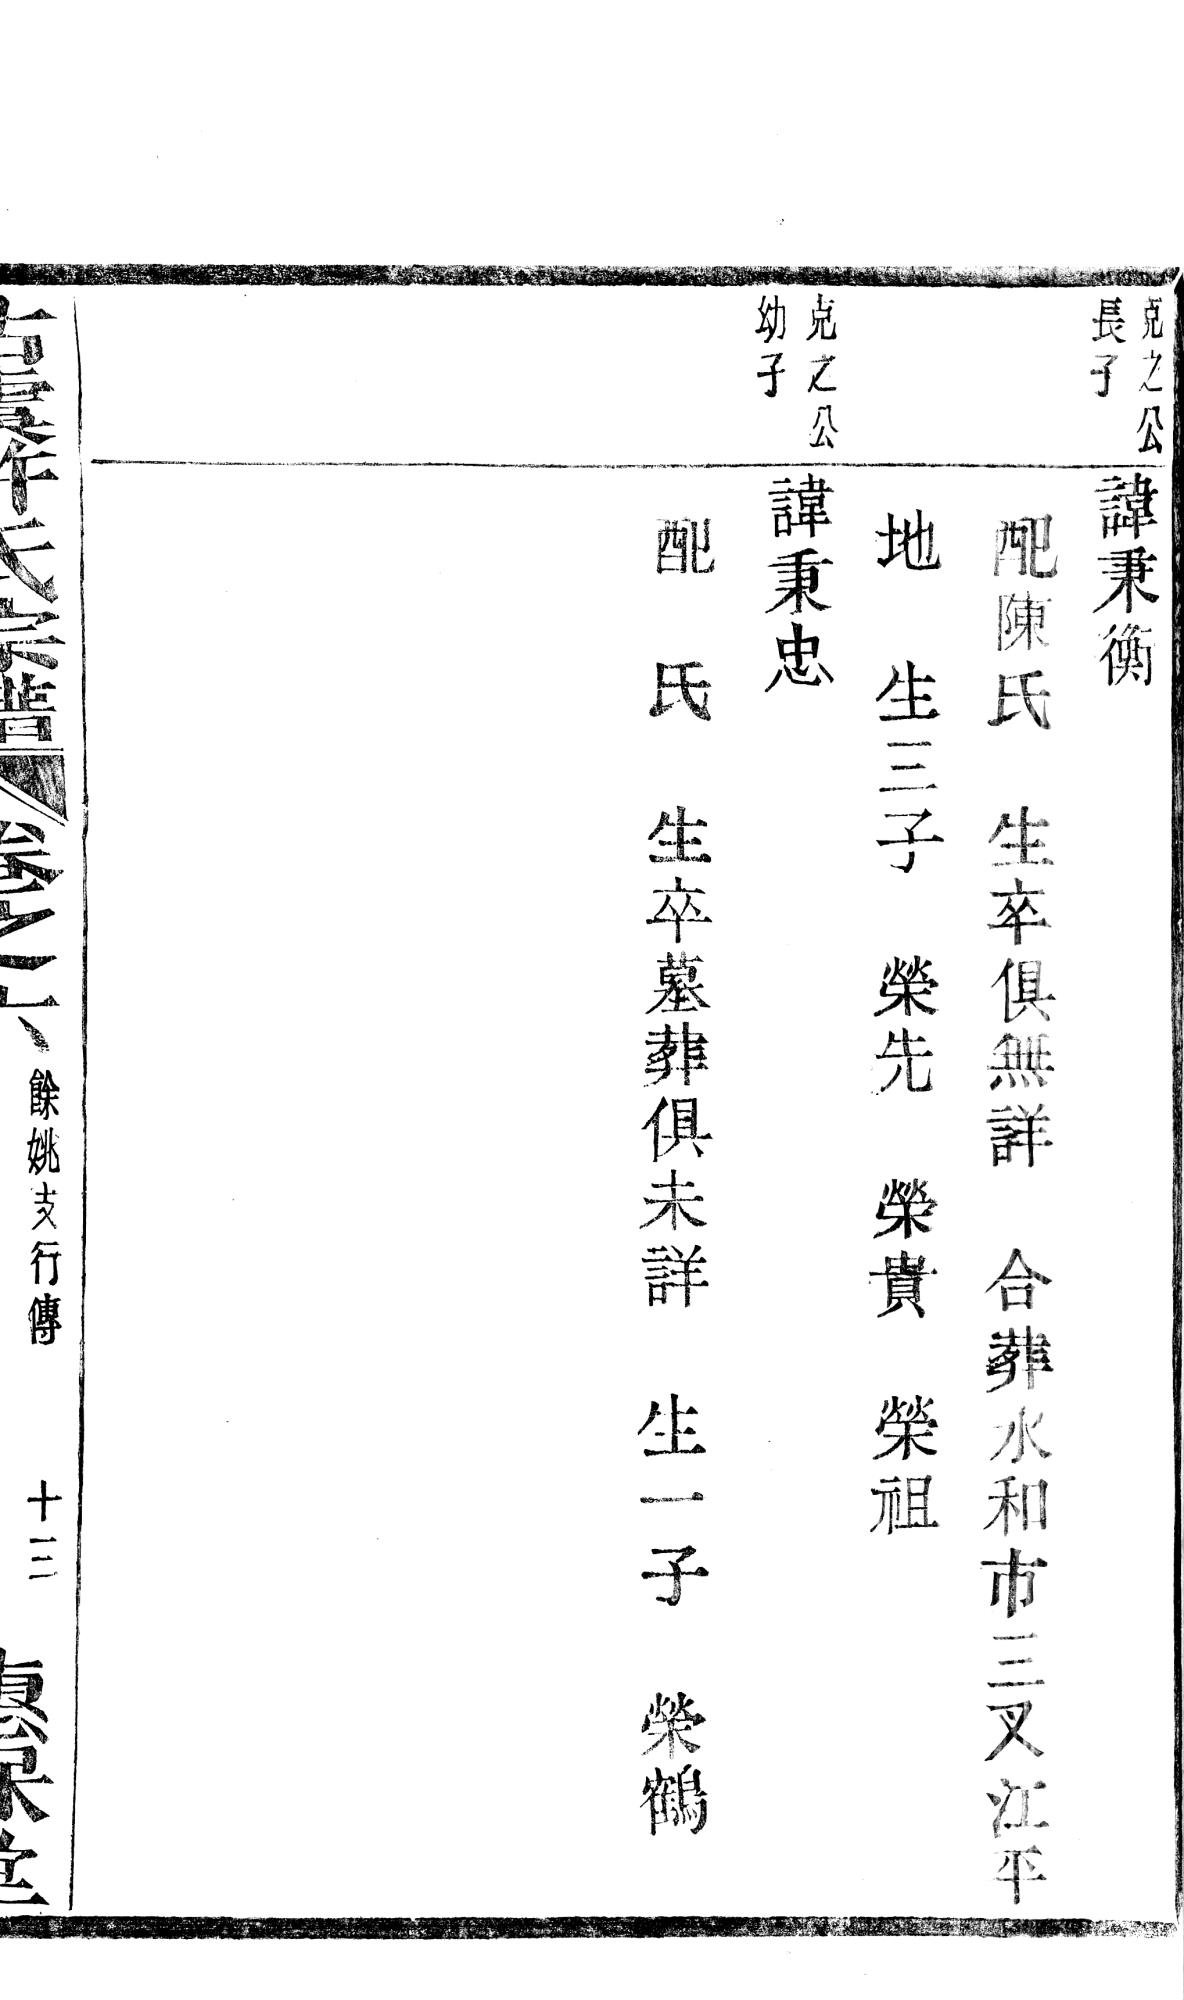 克之公
長子
諱秉衡
配陳氏　生卒俱無詳　合葬水和市三叉江平
地　生三子　榮先　榮貴　榮祖
克之公
幼子
諱秉忠
配　氏　生卒墓葬俱未詳　生一子　榮鶴
古虞許氏宗譜　卷之六　餘姚支行傳　十三　惠保堂